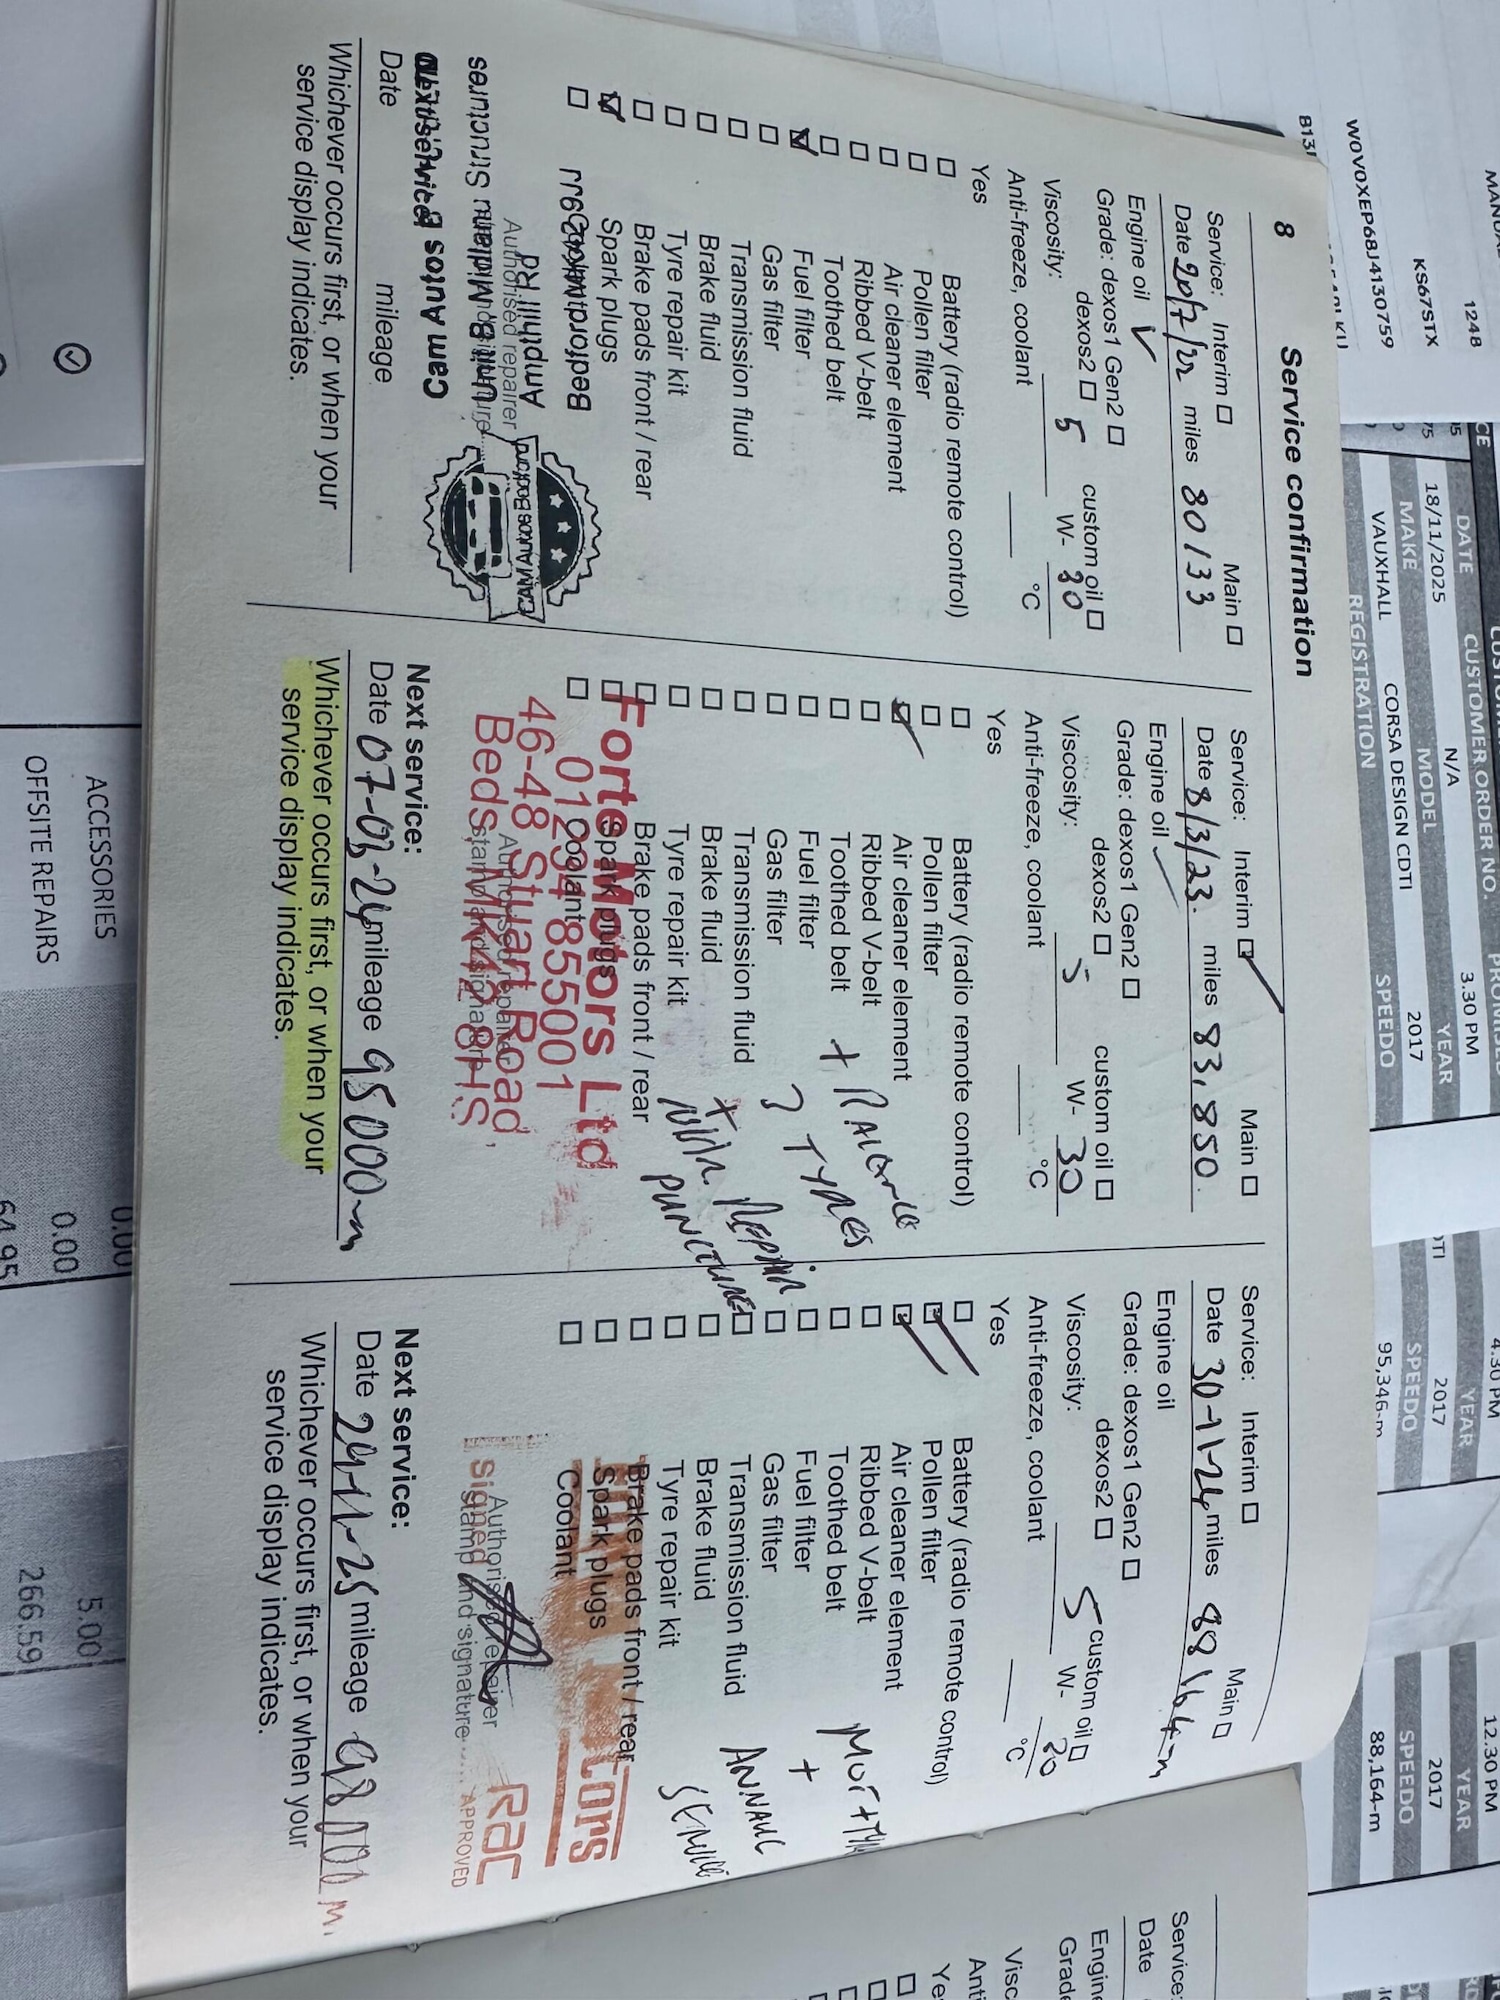 8 Service confirmation
Service: Interim ☐ Main ☐
Date 20/7/22 miles 80133
Engine oil ✓
Grade: dexos1 Gen2 ☐
dexos2 ☐ custom oil ☐
Viscosity: 5 W- 30
Anti-freeze, coolant °C
Yes
☐ Battery (radio remote control)
☐ Pollen filter
☐ Air cleaner element
☐ Ribbed V-belt
☐ Toothed belt
☑ Fuel filter
☐ Gas filter
☐ Transmission fluid
☐ Brake fluid
☐ Tyre repair kit
☐ Brake pads front / rear
☑ Spark plugs
☐
Cam Autos
Structures
Ampthill Rd
CAM AUTOS Bedford
Authorised repairer
Date mileage
Whichever occurs first, or when your
service display indicates.
Service: Interim ☑ Main ☐
Date 8/3/23. miles 83,850.
Engine oil ✓
Grade: dexos1 Gen2 ☐
dexos2 ☐ custom oil ☐
Viscosity: 5 W- 30
Anti-freeze, coolant °C
Yes
☐ Battery (radio remote control)
☐ Pollen filter
☑ Air cleaner element
☐ Ribbed V-belt
☐ Toothed belt
☐ Fuel filter
☐ Gas filter
☐ Transmission fluid
☐ Brake fluid
☐ Tyre repair kit
☐ Brake pads front / rear
☐ Spark plugs
☐ Coolant
+ BALANCE
3 TYRES
+ REPAIR
PUNCTURE
Forte Motors Ltd
01234 855001
46-48 Stuart Road,
Beds, MK42 8HS
Next service:
Date 07-03-24 mileage 95000m
Whichever occurs first, or when your
service display indicates.
Service: Interim ☐ Main ☐
Date 30-11-24 miles 88164m
Engine oil
Grade: dexos1 Gen2 ☐
dexos2 ☐ custom oil ☐
Viscosity: 5 W- 30
Anti-freeze, coolant °C
Yes
☐ Battery (radio remote control)
☑ Pollen filter
☑ Air cleaner element
☐ Ribbed V-belt
☐ Toothed belt
☐ Fuel filter
☐ Gas filter
☐ Transmission fluid
☐ Brake fluid
☐ Tyre repair kit
☐ Brake pads front / rear
☐ Spark plugs
☐ Coolant
MOT +
+
ANNUAL
SERVICE
Signed
Authorised repairer
stamp and signature
RAC
APPROVED
Next service:
Date 29-11-25 mileage 98000 M
Whichever occurs first, or when your
service display indicates.
Service:
Date
Engine
Grade
Visc
Anti
Yes
1248
KS67STX
W0V0XEP68J4130759
DATE CUSTOMER ORDER NO.
18/11/2025 N/A 3.30 PM
MAKE MODEL YEAR
VAUXHALL CORSA DESIGN CDTI 2017
REGISTRATION SPEEDO
4.30 PM
YEAR
2017
SPEEDO
95,346-m
12.30 PM
YEAR
2017
SPEEDO
88,164-m
ACCESSORIES 0.00 5.00
OFFSITE REPAIRS 0.00 266.59
64.95